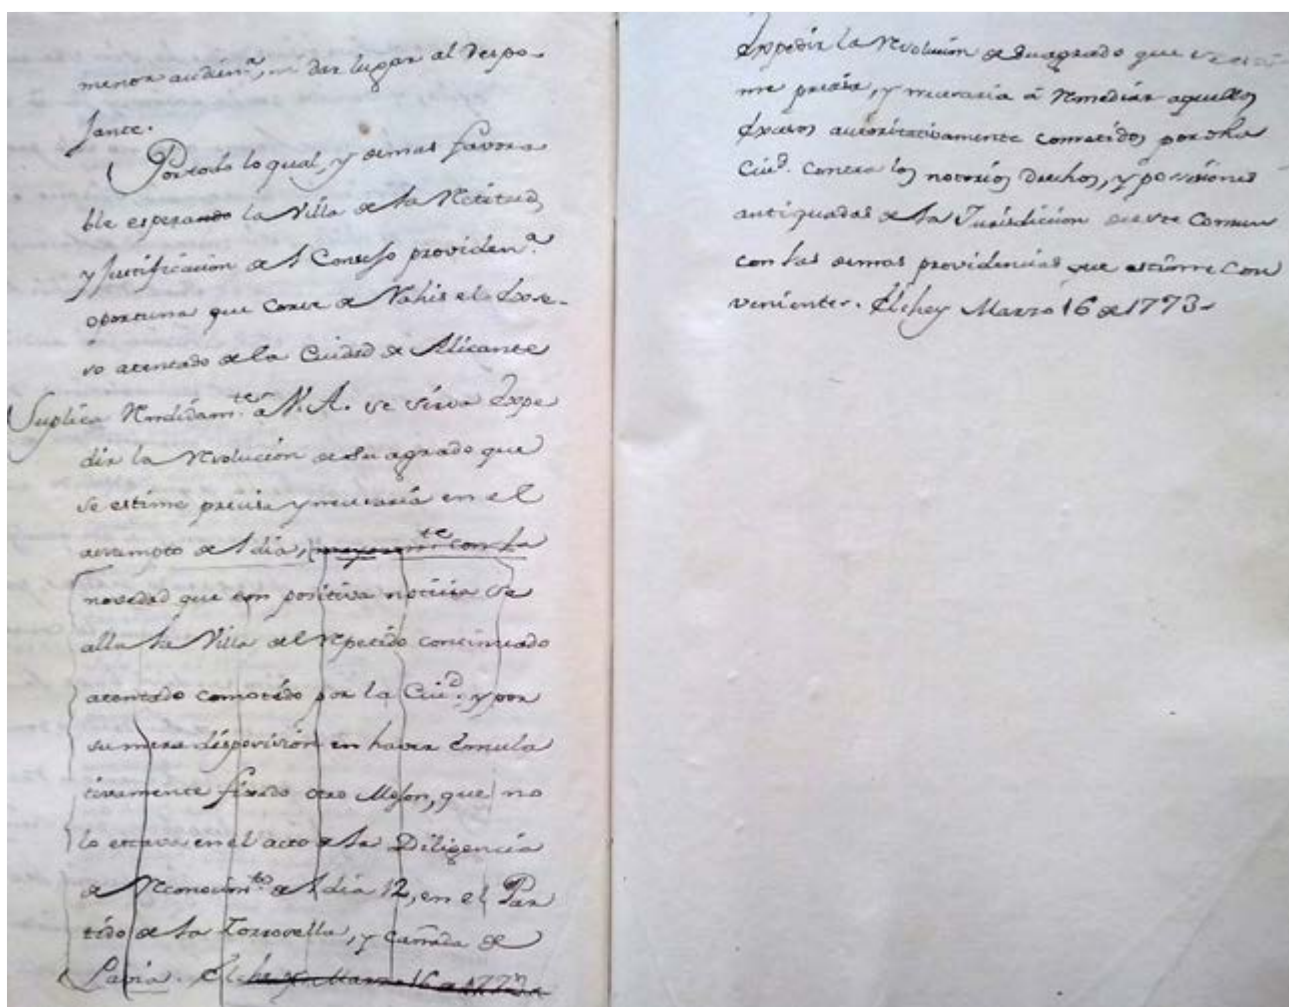 menor audien.ª, ni dar lugar al Despo-
jante.
Portodo lo qual, y demas favora
ble esperando la Villa de la Retitud,
y Justificacion del Consejo providen.ª
oportuna que Corte de Rahis el Exse-
so atentado de la Ciudad de Alicante
Suplica Rendidam.te a V. A. se sirva Expe
dir la Resolucion de su agrado que
se estime precisa y nesesaria en el
del dia, mayorm.te con la
novedad que con positiva noticia se
alla la Villa del Repetido continuado
atentado cometido por la Ciu.d y por
su mera disposición en haver Emula
tivamente fixado otro Mojon, que no
lo estava en el acto de la Diligencia
de Reconocim.to del dia 12, en el Par
tido de la Torrovella, y Cañada de
Lavia. Elche y Marzo 16 de 1773
Expedir la Resolucion de su agrado que se esti
me precisa, y nesesaria â Remediar aquellos
Exsesos autoritativamente cometidos por dha
Ciu.d Contra los notorios Drechos, y posesiones
antiquadas de la Jurisdicion de este Comun
con las demas providencias que estime Con
venientes. Elche y Marzo 16 de 1773-